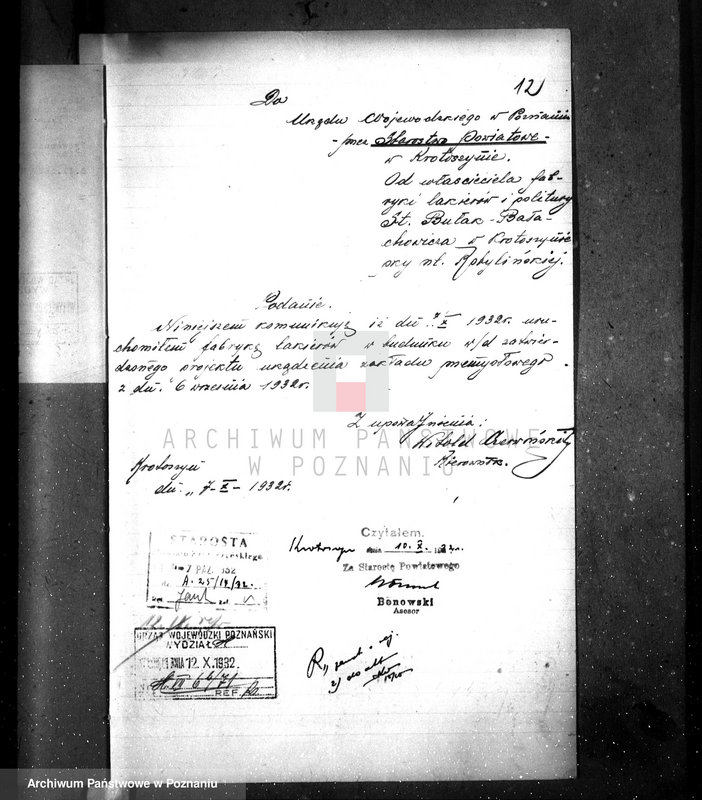 12
Do
Urzędu Wojewódzkiego w Poznaniu
- przez Starostwo Powiatowe -
w Krotoszynie.
Od właściciela fab-
ryki lakierów i politury
St. Bułak-Bała-
chowicza w Krotoszynie
przy ul. Kobylińskiej.
Podanie.
Niniejszem komunikuję iż dn. "7/X 1932r. uru-
chomiłem fabrykę lakierów w budynku w/d zatwier-
dzonego projektu urządzenia zakładu przemysłowego
z dn. 6 września 1932r.
Z upoważnienia:
Witold
Kierownik.
ARCHIWUM PAŃSTWOWE
W POZNANIU
Krotoszyn
dn. "7-X-1932r.
STAROSTA
7 PAŹ. 1932
A. 25/14/32.
Czytałem.
Krotoszyn dnia 10. X. 1932r.
Za Starostę Powiatowego
Bonowski
Asesor
URZĄD WOJEWÓDZKI POZNAŃSKI
WYDZIAŁ
DNIA 12. X. 1932.
REF.
2) do akt
Archiwum Państwowe w Poznaniu